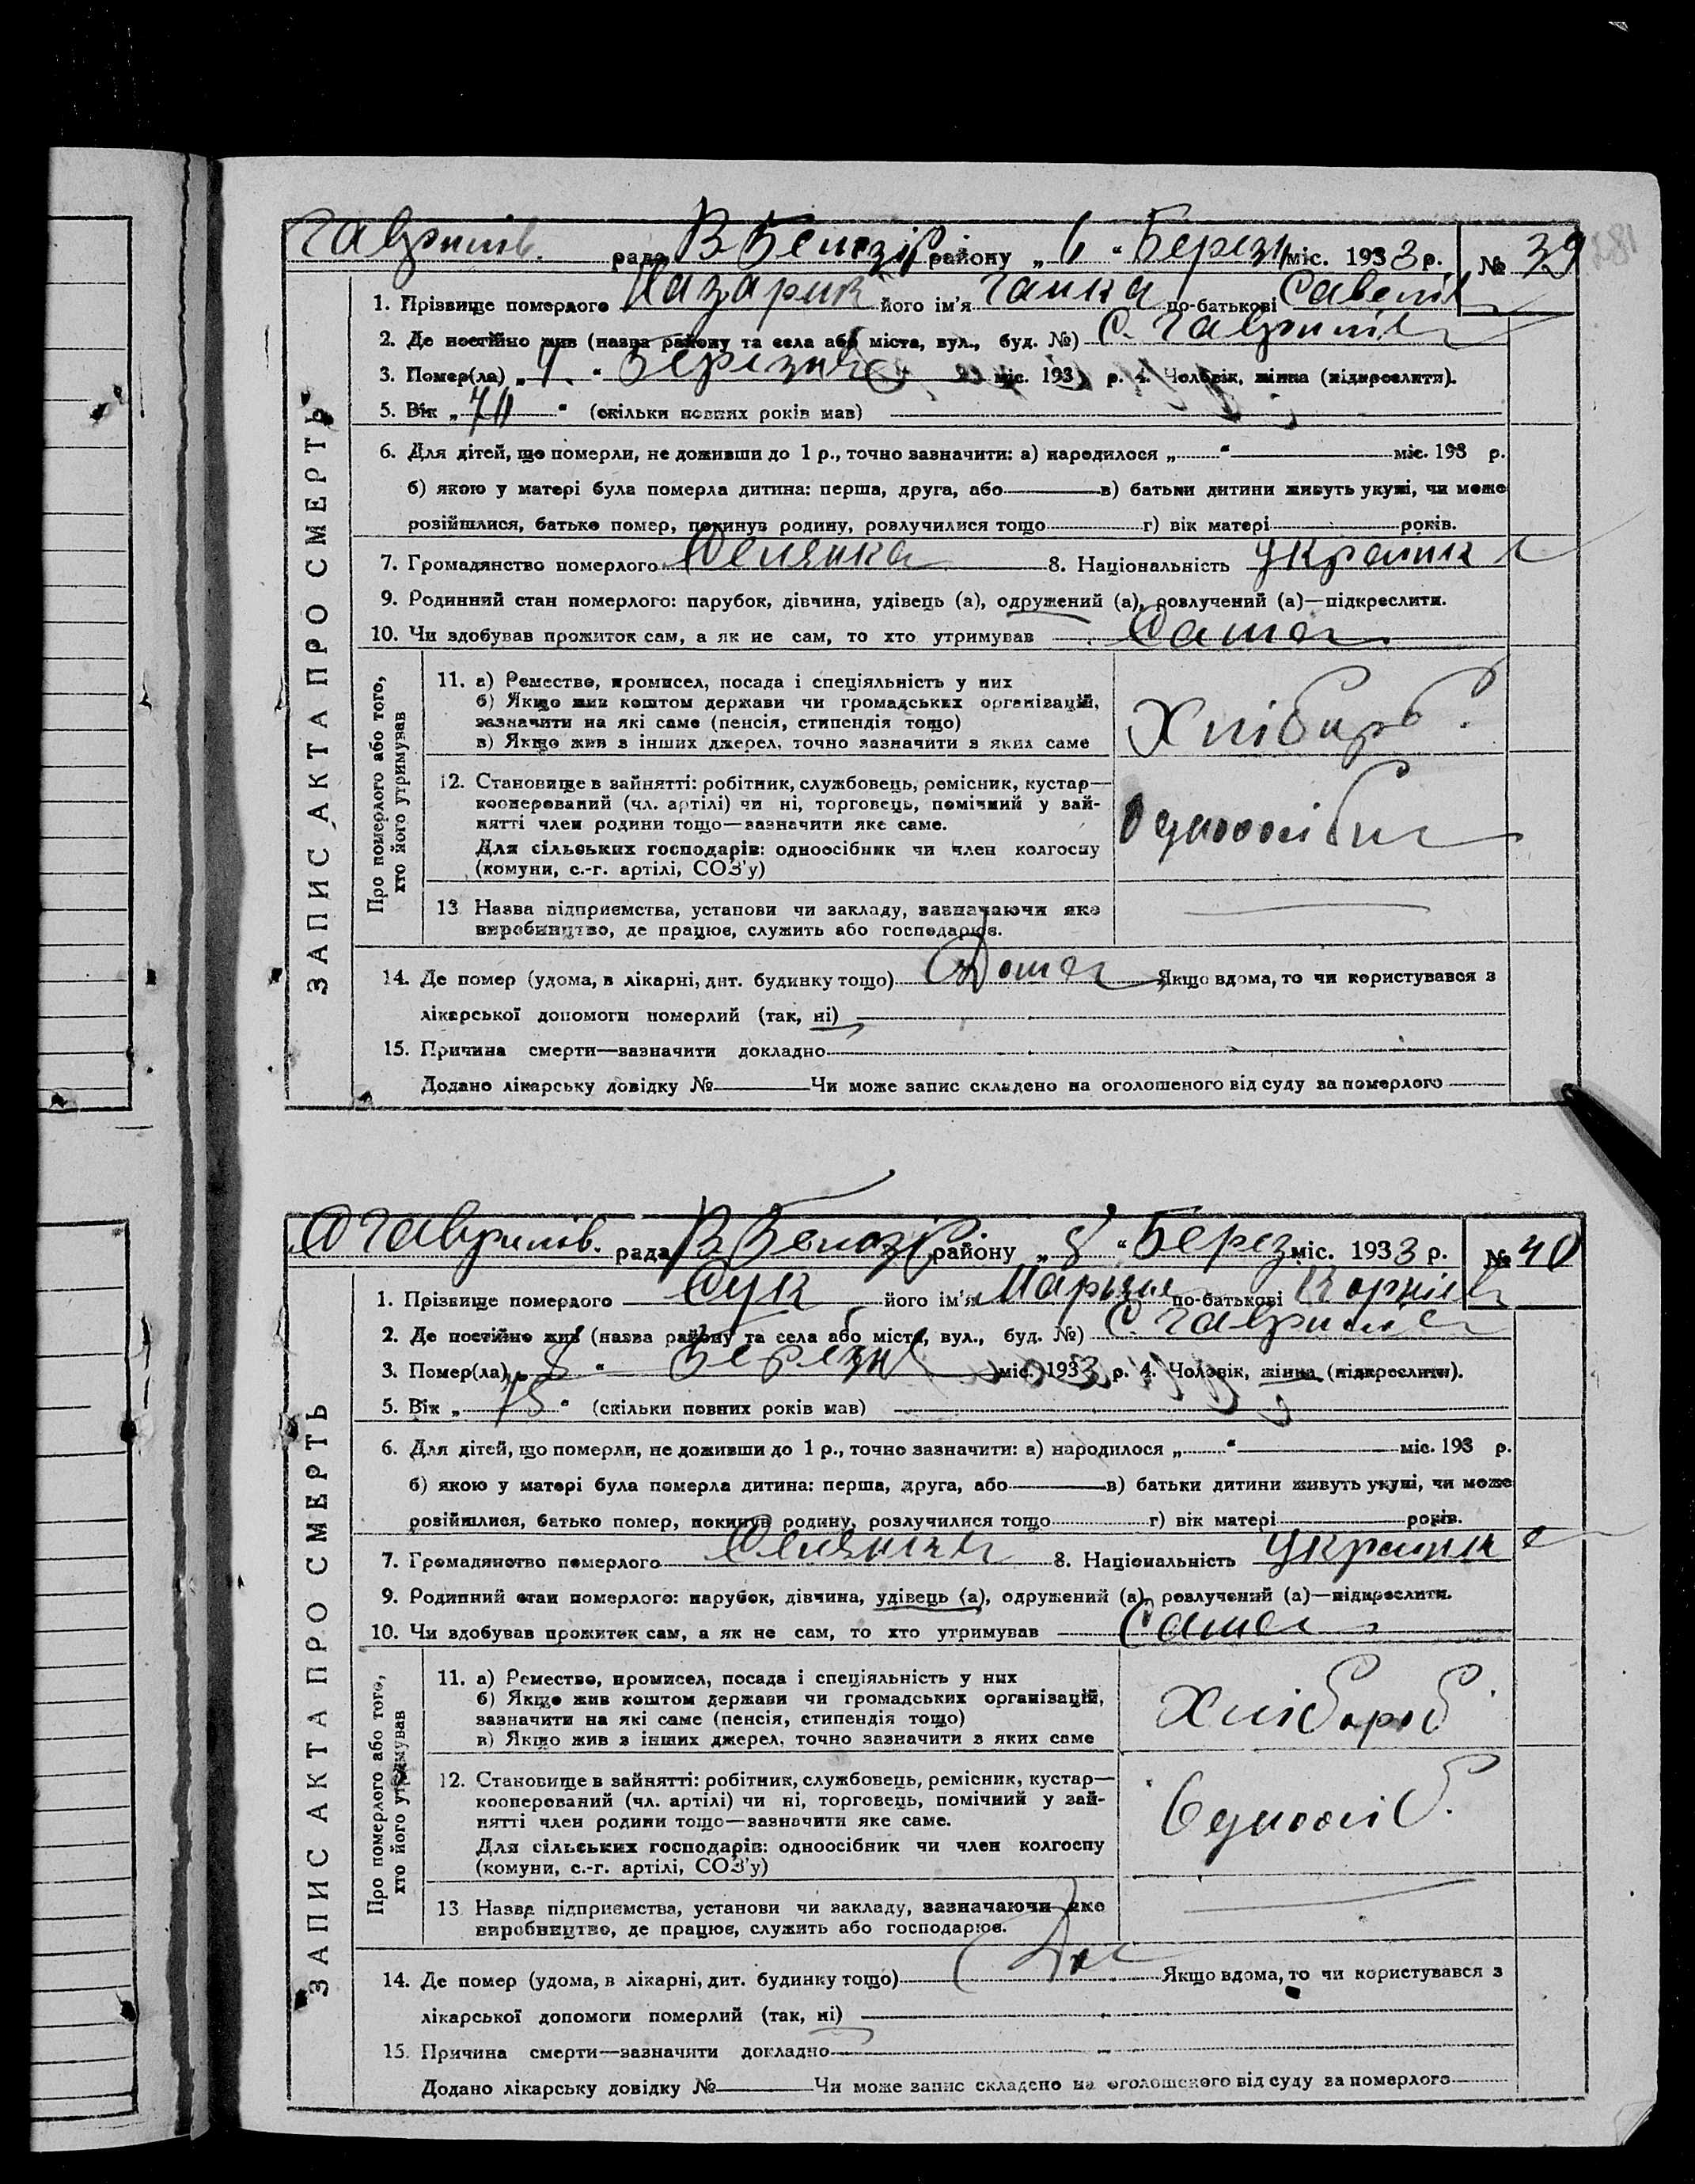 Гаврилів. рада В Білозір району „ 6 “ Березн міс. 1933 р. № 39
1. Прізвище померлого Назарик його ім'я Ганка по-батькові Савелів
2. Де постійно жив (назва району та села або міста, вул., буд. №) С. Гаврилів
3. Помер(ла) „ “ Березня міс. 193 р. 4. Чоловік, жінка (підкреслити).
5. Вік „ “ (скільки повних років мав)
6. Для дітей, що померли, не доживши до 1 р., точно зазначити: а) народилося „ “ міс. 193 р.
б) якою у матері була померла дитина: перша, друга, або в) батьки дитини живуть укупі, чи може
розійшлися, батько помер, покинув родину, розлучилися тощо г) вік матері років.
7. Громадянство померлого Селянка 8. Національність Українка
9. Родинний стан померлого: парубок, дівчина, удівець (а), одружений (а), розлучений (а)—підкреслити.
10. Чи здобував прожиток сам, а як не сам, то хто утримував Сама
ЗАПИС АКТА ПРО СМЕРТЬ
Про померлого або того,
хто його утримував
11. а) Ремество, промисел, посада і спеціяльність у них
б) Якщо жив коштом держави чи громадських організацій,
зазначити на які саме (пенсія, стипендія тощо)
в) Якщо жив з інших джерел, точно зазначити з яких саме
Хлібороб.
12. Становище в зайнятті: робітник, службовець, ремісник, кустар—
кооперований (чл. артілі) чи ні, торговець, помічний у зай-
нятті член родини тощо—зазначити яке саме.
Для сільських господарів: одноосібник чи член колгоспу
(комуни, с.-г. артілі, СОЗ'у)
Одноосібн
13. Назва підприємства, установи чи закладу, зазначаючи яке
виробництво, де працює, служить або господарює.
14. Де помер (удома, в лікарні, дит. будинку тощо) Дома Якщо вдома, то чи користувався з
лікарської допомоги померлий (так, ні)
15. Причина смерти—зазначити докладно
Додано лікарську довідку № Чи може запис складено на оголошеного від суду за померлого
Гаврилів. рада В Білозір. району „ 8 “ Берез міс. 1933 р. № 40
1. Прізвище померлого Сук його ім'я по-батькові Корніїв
2. Де постійно жив (назва району та села або міста, вул., буд. №) С. Гаврилів
3. Помер(ла) „ 8 “ Березня міс. 1933 р. 4. Чоловік, жінка (підкреслити).
5. Вік „ 75 “ (скільки повних років мав)
6. Для дітей, що померли, не доживши до 1 р., точно зазначити: а) народилося „ “ міс. 193 р.
б) якою у матері була померла дитина: перша, друга, або в) батьки дитини живуть укупі, чи може
розійшлися, батько помер, покинув родину, розлучилися тощо г) вік матері років.
7. Громадянство померлого Селянка 8. Національність Українка
9. Родинний стан померлого: парубок, дівчина, удівець (а), одружений (а), розлучений (а)—підкреслити.
10. Чи здобував прожиток сам, а як не сам, то хто утримував Сама
ЗАПИС АКТА ПРО СМЕРТЬ
Про померлого або того,
хто його утримував
11. а) Ремество, промисел, посада і спеціяльність у них
б) Якщо жив коштом держави чи громадських організацій,
зазначити на які саме (пенсія, стипендія тощо)
в) Якщо жив з інших джерел, точно зазначити з яких саме
Хлібороб
12. Становище в зайнятті: робітник, службовець, ремісник, кустар—
кооперований (чл. артілі) чи ні, торговець, помічний у зай-
нятті член родини тощо—зазначити яке саме.
Для сільських господарів: одноосібник чи член колгоспу
(комуни, с.-г. артілі, СОЗ'у)
Одноосіб.
13. Назва підприємства, установи чи закладу, зазначаючи яке
виробництво, де працює, служить або господарює.
14. Де помер (удома, в лікарні, дит. будинку тощо) Якщо вдома, то чи користувався з
лікарської допомоги померлий (так, ні)
15. Причина смерти—зазначити докладно
Додано лікарську довідку № Чи може запис складено на оголошеного від суду за померлого